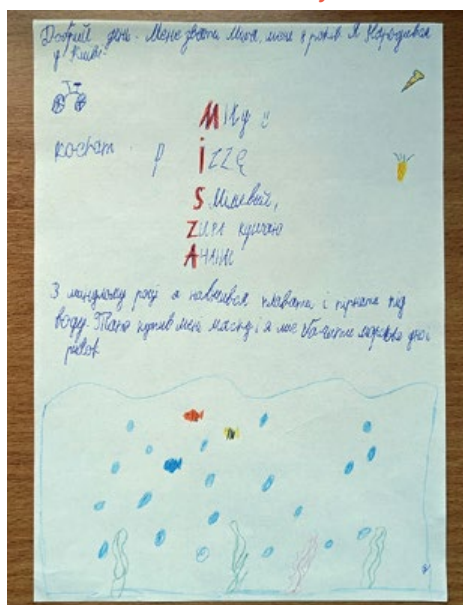 Добрий день. Мене звати Міша, мені 8 років. Я народився
у Києві.
Міку й
кохат піZZĘ
SМіливий,
ZUPA кукаю
Ананас
З минулому році я навчився плавати і пірнати під
воду. Тато купив мені маску і я міг бачити морське дно і
рибок